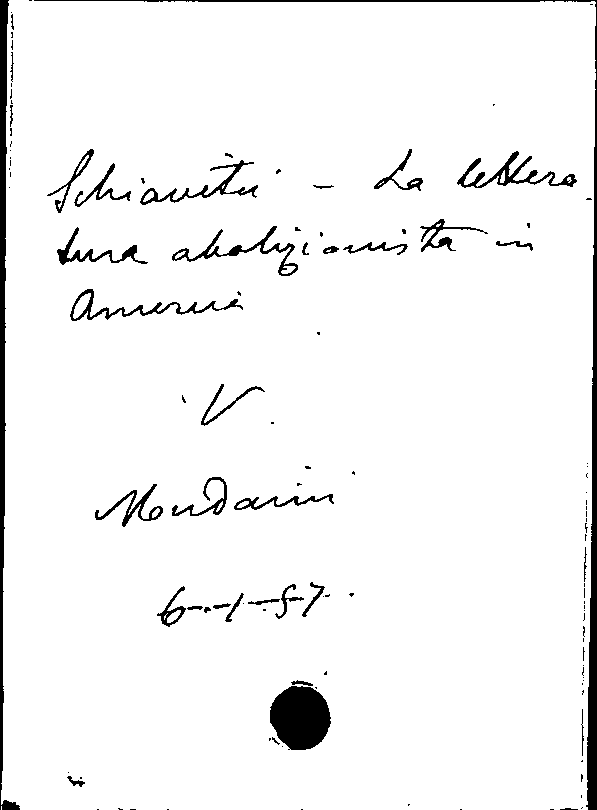 Schiavitù - La lettera
tura abolizionista in
America
V
Mondaini
6-1-57.